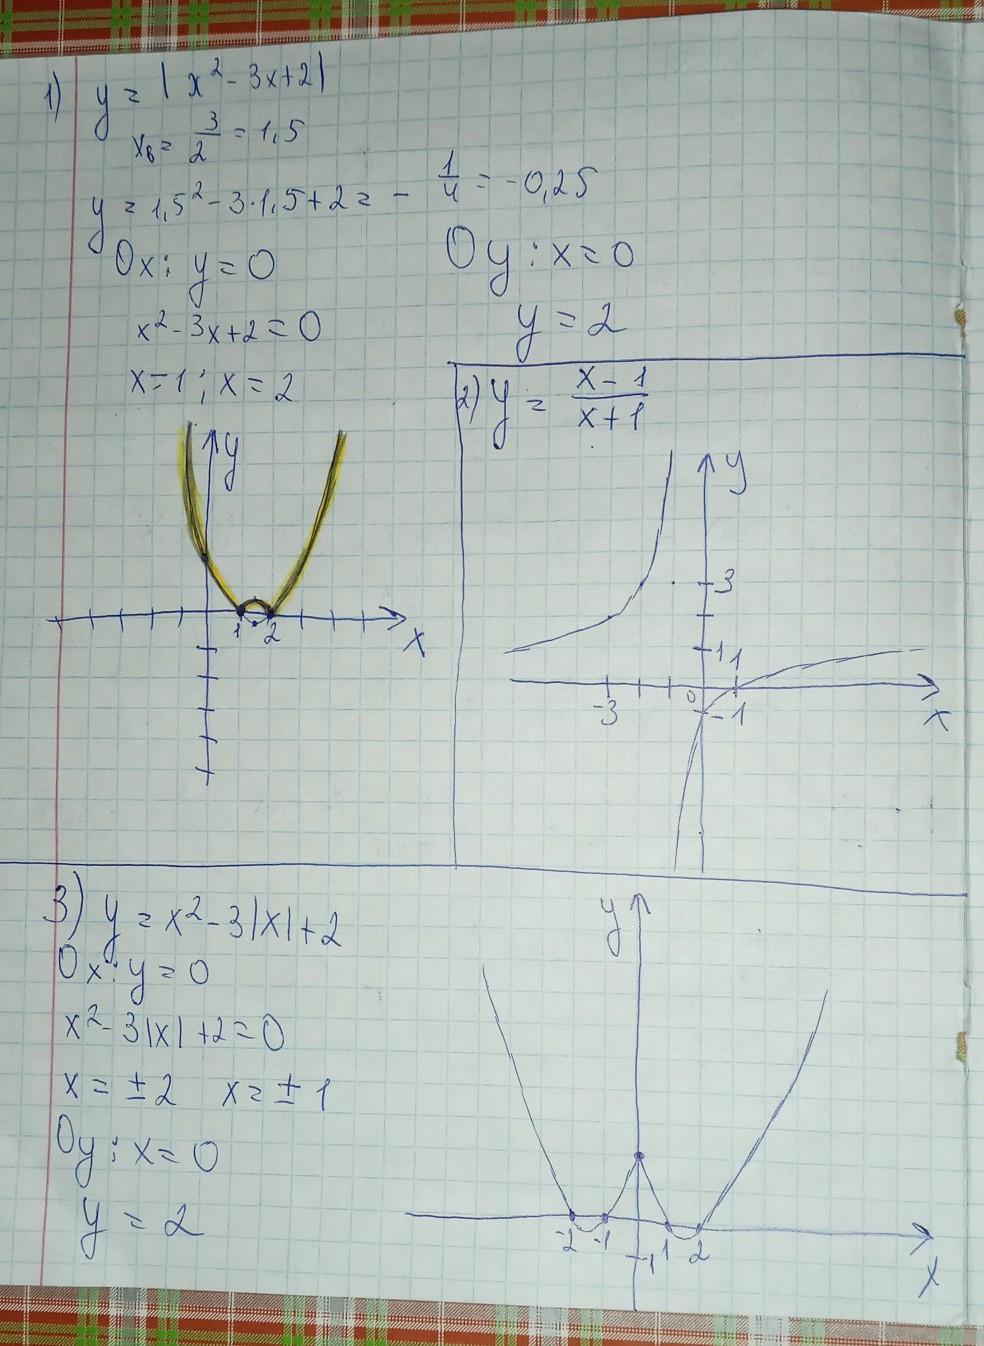 1) y = |x² - 3x + 2|
xв = 3/2 = 1,5
y = 1,5² - 3·1,5 + 2 = - 1/4 = -0,25
Ox: y = 0
x² - 3x + 2 = 0
x = 1; x = 2
Oy: x = 0
y = 2
y
1 2
x
2) y = (x - 1)/(x + 1)
y
3
1 1
-3 0 -1
x
3) y = x² - 3|x| + 2
Ox: y = 0
x² - 3|x| + 2 = 0
x = ± 2 x = ± 1
Oy: x = 0
y = 2
y
-2 -1 1 2
-1
x